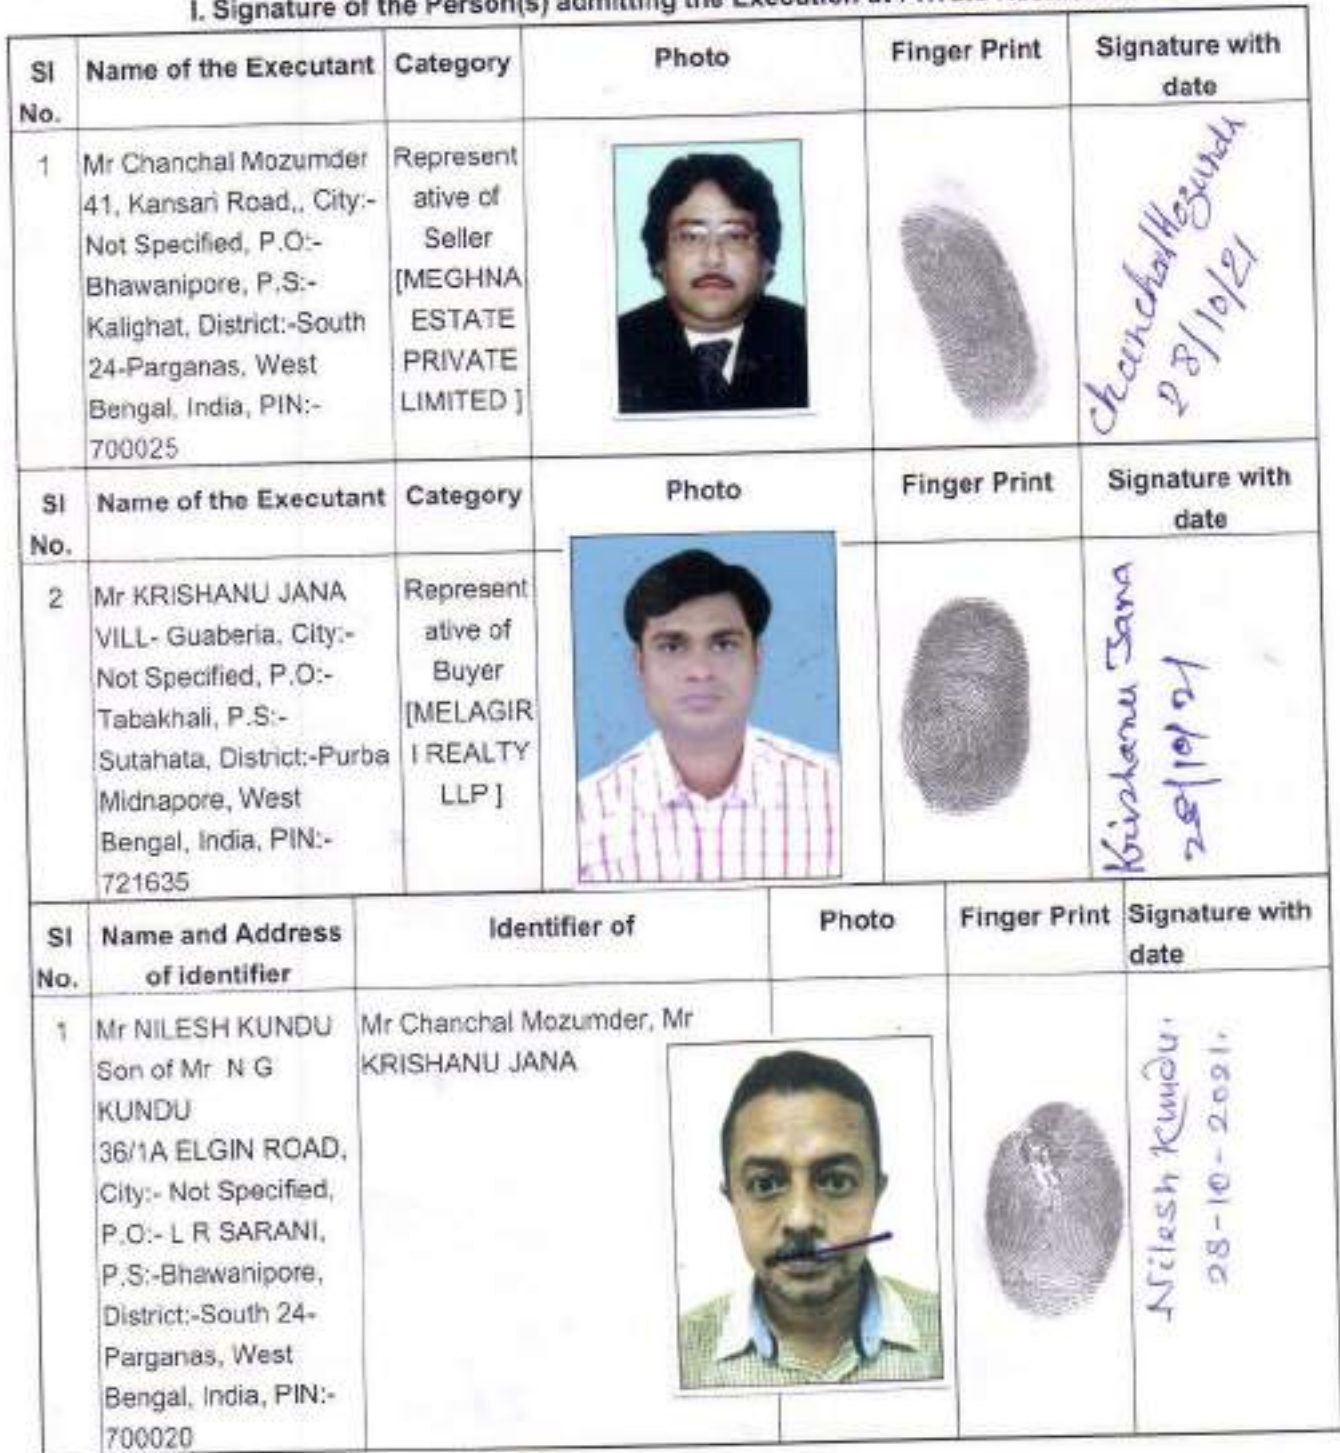 I. Signature of the Person(s) admitting the Execution at Private
SI No. Name of the Executant Category Photo Finger Print Signature with date
1
Mr Chanchal Mozumder
41, Kansari Road,, City:-
Not Specified, P.O:-
Bhawanipore, P.S:-
Kalighat, District:-South
24-Parganas, West
Bengal, India, PIN:-
700025
Represent
ative of
Seller
[MEGHNA
ESTATE
PRIVATE
LIMITED ]
Chanchal Mozumder
28/10/21
SI No. Name of the Executant Category Photo Finger Print Signature with date
2
Mr KRISHANU JANA
VILL- Guaberia, City:-
Not Specified, P.O:-
Tabakhali, P.S:-
Sutahata, District:-Purba
Midnapore, West
Bengal, India, PIN:-
721635
Represent
ative of
Buyer
[MELAGIR
I REALTY
LLP ]
Krishanu Jana
28/10/21
SI No. Name and Address of identifier Identifier of Photo Finger Print Signature with date
1
Mr NILESH KUNDU
Son of Mr N G
KUNDU
36/1A ELGIN ROAD,
City:- Not Specified,
P.O:- L R SARANI,
P.S:-Bhawanipore,
District:-South 24-
Parganas, West
Bengal, India, PIN:-
700020
Mr Chanchal Mozumder, Mr
KRISHANU JANA
Nilesh Kundu.
28-10-2021.